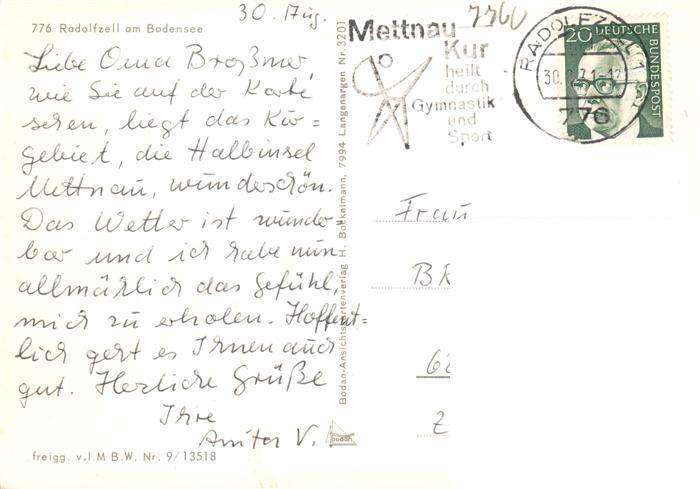 30. Aug.
776 Radolfzell am Bodensee
Liebe Oma Broßmer,
wie Sie auf der Karte
sehen, liegt das Kur=
gebiet, die Halbinsel
Mettnau, wunderschön.
Das Wetter ist wunder=
bar und ich habe nun
allmählich das Gefühl,
mich zu erholen. Hoffent=
lich geht es Ihnen auch
gut. Herzliche Grüße
Ihre
Anita V.
freigg. v. I M B.W. Nr. 9/13518
Bodan-Ansichtskartenverlag H. Bockelmann, 7994 Langenargen Nr. 3201
bodan
7760
Mettnau
Kur
heilt
durch
Gymnastik
und
Sport
RADOLFZELL
776
20 DEUTSCHE
BUNDESPOST
Frau